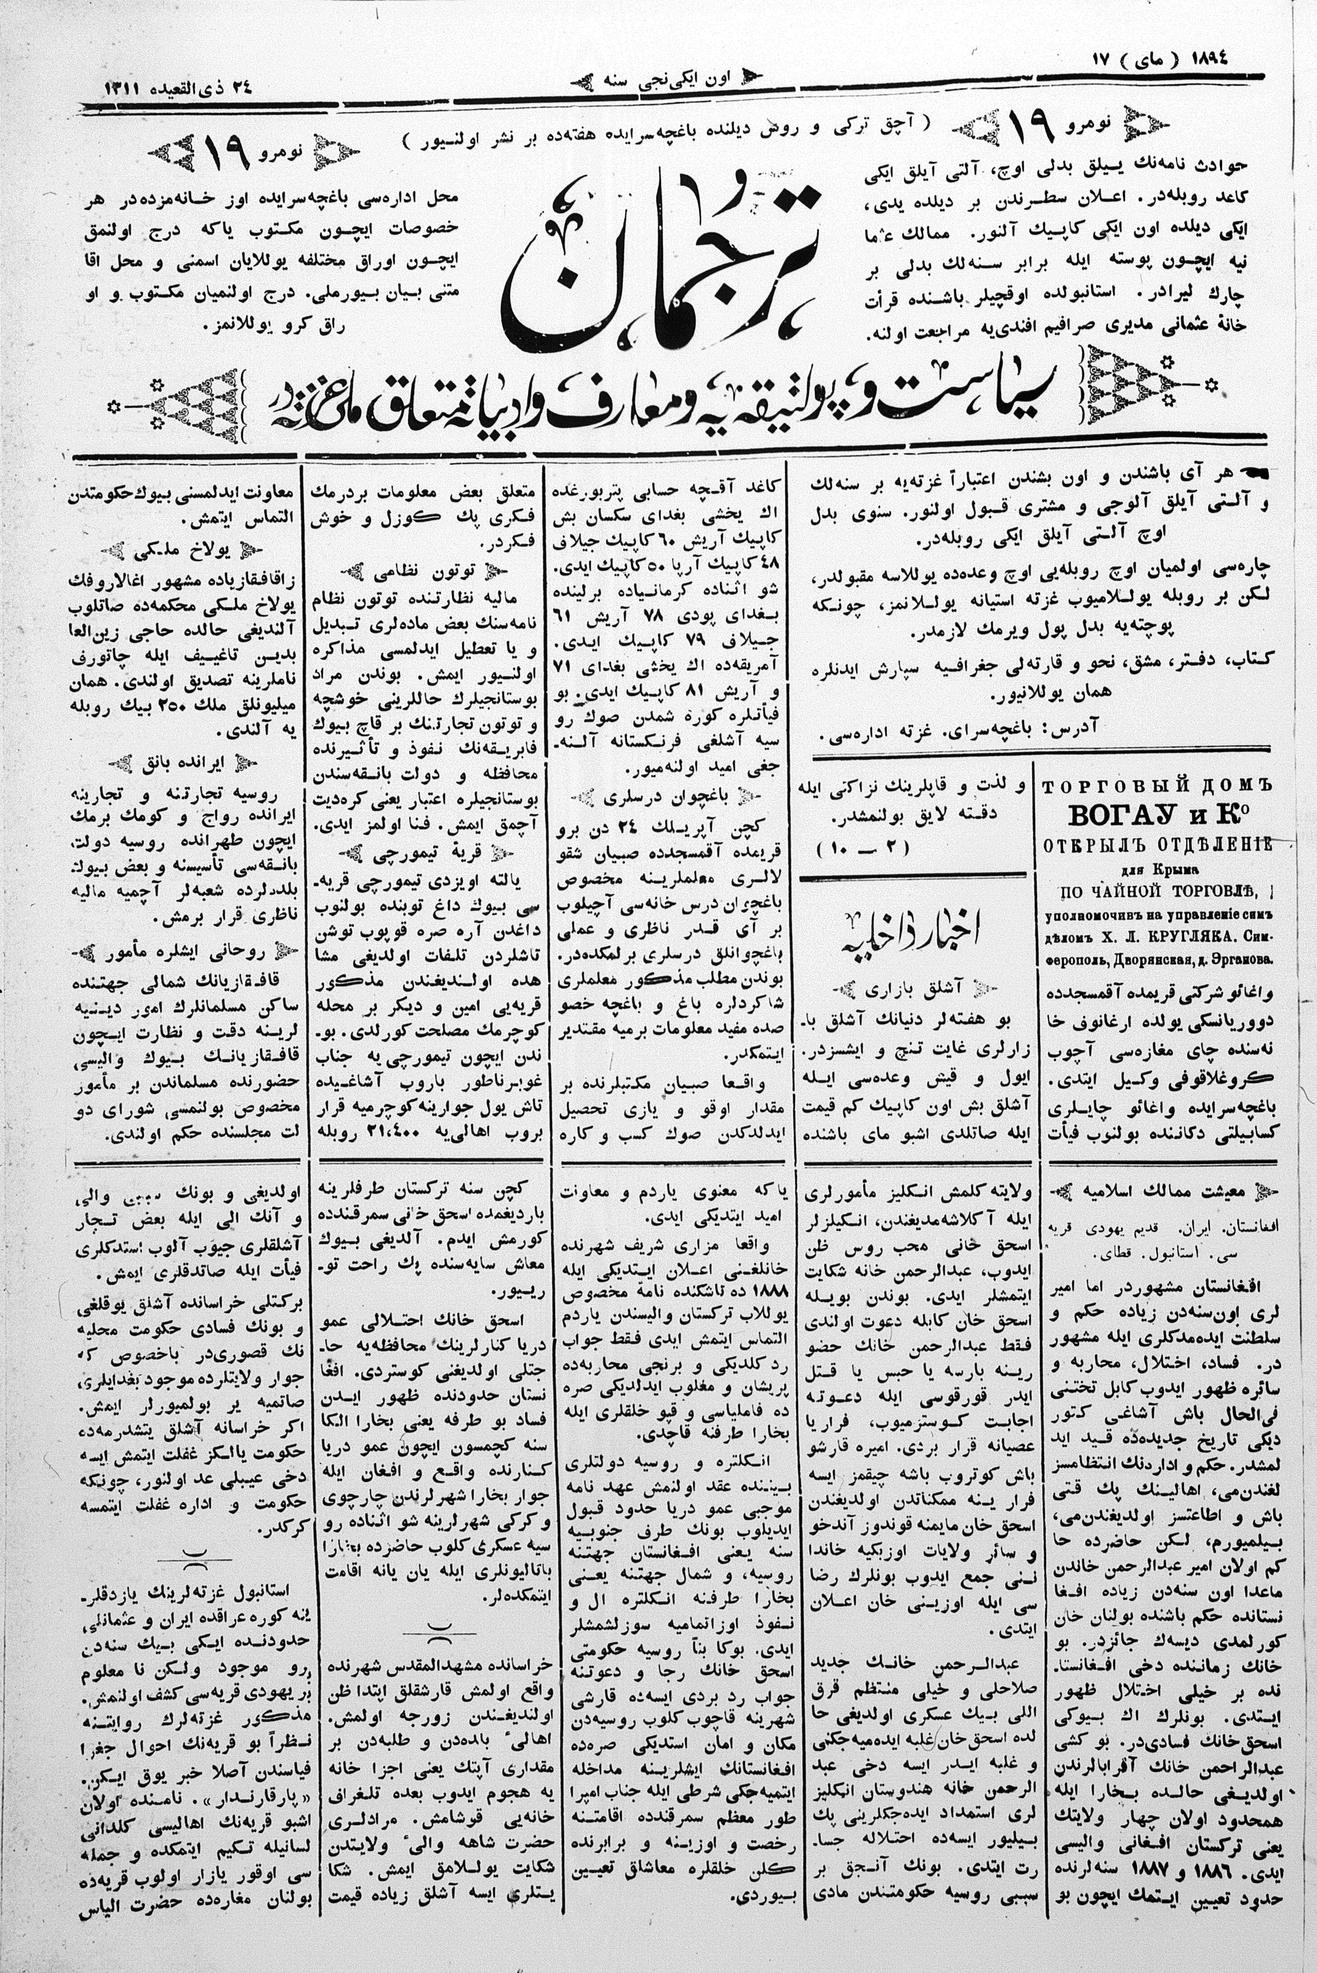 ١٨٩٤ ( مای ) ١٧
اون ایکی نجی سنه
٢٤ ذی القعیده ١٣١١
نومرو ١٩
( آچق ترکی و روس دیلنده باغچه سرایده هفته ده بر نشر اولنیور )
نومرو ١٩
حوادث نامه نك ییلق بدلی اوچ، آلتی آیلق ایکی
کاغد روبله در. اعلان سطرندن بر دیلده یدی،
ایکی دیلده اون ایکی کاپیك آلنور. ممالك عثما
نیه ایچون پوسته ایله برابر سنه لك بدلی بر
چارك لیرادر. استانبولده اوقچیلر باشنده قرأت
خانهٔ عثمانی مدیری صرافیم افندی یه مراجعت اولنه.
ترجمان
محل اداره سی باغچه سرایده اوز خانه مزده در هر
خصوصات ایچون مکتوب یاکه درج اولنمق
ایچون اوراق مختلفه یوللایان اسمنی و محل اقا
متنی بیان بیورملی. درج اولنمیان مکتوب و او
راق کرو یوللانمز.
سیاست و پولتیقه یه و معارف و ادبیاته متعلق ملی غزته در
هر آی باشندن و اون بشندن اعتباراً غزته یه بر سنه لك
و آلتی آیلق آلوجی و مشتری قبول اولنور. سنوی بدل
اوچ آلتی آیلق ایکی روبله در.
چاره سی اولمیان اوچ روبله یی اوچ وعده ده یوللاسه مقبولدر،
لکن بر روبله یوللامیوب غزته استیانه یوللانمز، چونکه
پوچته یه بدل پول ویرمك لازمدر.
کتاب، دفتر، مشق، نحو و قارته لی جغرافیه سپارش ایدنلره
همان یوللانیور.
آدرس: باغچه سرای. غزته اداره سی.
ТОРГОВЫЙ ДОМЪ
ВОГАУ и Ко
ОТКРЫЛЪ ОТДѢЛЕНІЕ
для Крыма
ПО ЧАЙНОЙ ТОРГОВЛѢ,
уполномочивъ на управленіе симъ
дѣломъ Х. Л. КРУГЛЯКА. Сим-
ферополь, Дворянская, д. Эрганова.
واغائو شرکتی قریمده آقمسجدده
دووریانسکی یولده ارغانوف خا
نه سنده چای مغازه سی آچوب
کروغلاقوفی وکیل ایتدی.
باغچه سرایده واغائو چایلری
کسابیلتی دکاننده بولنوب فیأت
و لذت و قاپلرینك نزاکتی ایله
دقته لایق بولنمشدر.
( ٢ — ١٠ )
اخبار داخلیه
آشلق بازاری
بو هفته لر دنیانك آشلق با-
زارلری غایت تنچ و ایشسزدر.
ایول و قیش وعده سی ایله
آشلق بش اون کاپیك کم قیمت
ایله صاتلدی اشبو مای باشنده
کاغد آقچه حسابی پتربورغده
اك یخشی بغدای سکسان بش
کاپیك آریش ٦٠ کاپیك جیلاف
٤٨ کاپیك آرپا ٥٠ کاپیك ایدی.
شو اثناده کرمانیاده برلینده
بغدای پودی ٧٨ آریش ٦١
جیلاف ٧٩ کاپیك ایدی.
آمریقه ده اك یخشی بغدای ٧١
و آریش ٨١ کاپیك ایدی. بو
فیأتلره کوره شمدن صوك رو
سیه آشلغی فرنکستانه آلنه-
جغی امید اولنه میور.
باغچوان درسلری
کچن آپریلك ٢٤ دن برو
قریمده آقمسجدده صبیان شقو
لالری معلملرینه مخصوص
باغچوان درس خانه سی آچیلوب
بر آی قدر ناظری و عملی
باغچوانلق درسلری برلمکده در.
بوندن مطلب مذکور معلملری
شاکردلره باغ و باغچه خصو
صده مفید معلومات برمیه مقتدیر
ایتمکدر.
واقعا صبیان مکتبلرنده بر
مقدار اوقو و یازی تحصیل
ایدلدکدن صوك کسب و کاره
متعلق بعض معلومات بردرمك
فکری پك کوزل و خوش
فکردر.
توتون نظامی
مالیه نظارتنده توتون نظام
نامه سنك بعض ماده لری تبدیل
و یا تعطیل ایدلمسی مذاکره
اولنیور ایمش. بوندن مراد
بوستانجیلرك حاللرینی خوشچه
و توتون تجارتنك بر قاچ بیوك
فابریقه نك نفوذ و تأثیرنده
محافظه و دولت بانقه سندن
بوستانجیلره اعتبار یعنی کره دیت
آچمق ایمش. فنا اولمز ایدی.
قریهٔ تیمورچی
یالته اویزدی تیمورچی قریه-
سی بیوك داغ توبنده بولنوب
داغدن آره صره قوپوب توشن
تاشلردن تلفات اولدیغی مشا
هده اولندیغندن مذکور
قریه یی امین و دیکر بر محله
کوچرمك مصلحت کورلدی. بو-
ندن ایچون تیمورچی یه جناب
غوبرناطور باروپ آشاغیده
تاش یول جوارینه کوچرمیه قرار
بروب اهالی یه ٢١،٤٠٠ روبله
معاونت ایدلمسنی بیوك حکومتدن
التماس ایتمش.
یولاخ ملکی
زاقافقازیاده مشهور اغالاروفك
یولاخ ملکی محکمه ده صاتلوب
آلندیغی حالده حاجی زین العا
بدین تاغییف ایله چاتورف
ناملرینه تصدیق اولندی. همان
میلیونلق ملك ٢٥٠ بیك روبله
یه آلندی.
ایرانده بانق
روسیه تجارتنه و تجارینه
ایرانده رواج و کومك برمك
ایچون طهرانده روسیه دولت
بانقه سی تأسیسنه و بعض بیوك
بلدلرده شعبه لر آچمیه مالیه
ناظری قرار برمش.
روحانی ایشلره مأمور
قافقازیانك شمالی جهتنده
ساکن مسلمانلرك امور دینیه
لرینه دقت و نظارت ایچون
قافقازیانك بیوك والیسی
حضورنده مسلماندن بر مأمور
مخصوص بولنمسی شورای دو
لت مجلسنده حکم اولندی.
معیشت ممالك اسلامیه
افغانستان. ایران. قدیم یهودی قریه
سی. استانبول. قطای.
افغانستان مشهوردر اما امیر
لری اون سنه دن زیاده حکم و
سلطنت ایده مدکلری ایله مشهور
در. فساد، اختلال، محاربه و
سائره ظهور ایدوب کابل تختنی
فی الحال باش آشاغی کتور
دیکی تاریخ جدیده ده قید اید
لمشدر. حکم و اداره نك انتظامسز
لغندن می، اهالینك پك قتی
باش و اطاعتسز اولدیغندن می،
بیلمیورم، لکن حاضرده حا
کم اولان امیر عبدالرحمن خاندن
ماعدا اون سنه دن زیاده افغا
نستانده حکم باشنده بولنان خان
کورلمدی دیسه ك جائزدر. بو
خانك زماننده دخی افغانستا-
نده بر خیلی اختلال ظهور
ایتدی. بونلرك اك بیوکی
اسحق خانك فسادی در. بو کشی
عبدالراحمن خانك آقرابالرندن
اولدیغی حالده بخارا ایله
همحدود اولان چهار ولایتك
یعنی ترکستان افغانی والیسی
ایدی. ١٨٨٦ و ١٨٨٧ سنه لرنده
حدود تعیین ایتمك ایچون بو
ولایته کلمش انکلیز مأمورلری
ایله آکلاشه مدیغندن، انکیلزلر
اسحق خانی محب روس ظن
ایدوب، عبدالرحمن خانه شکایت
ایتمشلر ایدی. بوندن بویله
اسحق خان کابله دعوت اولندی
فقط عبدالرحمن خانك حضو
رینه بارسه یا حبس یا قتل
ایدر قورقوسی ایله دعوته
اجابت کوسترمیوب، فرار یا
عصیانه قرار بردی. امیره قارشو
باش کوتروب باشه چیقمز ایسه
فرار ینه ممکناتدن اولدیغندن
اسحق خان مایمنه قوندوز آندخو
و سائر ولایات اوزبکیه خاندا
ننی جمع ایدوب بونلرك رضا
سی ایله اوزینی خان اعلان
ایتدی.
عبدالرحمن خانك جدید
صلاحلی و خیلی منتظم قرق
اللی بیك عسکری اولدیغی حا
لده اسحق خان غلبه ایده میه جکنی
و غلبه ایدر ایسه دخی عبد
الرحمن خانه هندوستان انکلیز
لری استمداد ایده جکلرینی پك
بیلیور ایسه ده احتلاله جسا-
رت ایتدی. بونك آنجق بر
سببی روسیه حکومتندن مادی
یاکه معنوی یاردم و معاونت
امید ایتدیکی ایدی.
واقعا مزاری شریف شهرنده
خانلغنی اعلان ایتدیکی ایله
١٨٨٨ ده تاشکنده نامهٔ مخصوص
یوللاب ترکستان والیسندن یاردم
التماس ایتمش ایدی فقط جواب
رد کلدیکی و برنجی محاربه ده
پریشان و مغلوب ایدلدیکی صره
ده فامیلیاسی و قپو خلقلری ایله
بخارا طرفنه قاچدی.
انکلتره و روسیه دولتلری
بیننده عقد اولنمش عهد نامه
موجبی عمو دریا حدود قبول
ایدیلوب بونك طرف جنوبیه
سنه یعنی افغانستان جهتنه
روسیه، و شمال جهتنه یعنی
بخارا طرفنه انکلتره ال و
نفوذ اوزاتمامیه سوزلشمشلر
ایدی. بوکا بناً روسیه حکومتی
اسحق خانك رجا و دعوتنه
جواب رد بردی ایسه ده قارشی
شهرینه قاچوب کلوب روسیه دن
مکان و امان استدیکی صره ده
افغانستانك ایشلرینه مداخله
ایتمیه جکی شرطی ایله جناب امپرا
طور معظم سمرقندده اقامتنه
رخصت و اوزینه و برابرنده
کلن خلقلره معاشلق تعیین
بیوردی.
کچن سنه ترکستان طرفلرینه
باردیغمده اسحق خانی سمرقندده
کورمش ایدم. آلدیغی بیوك
معاش سایه سنده پك راحت تو-
ریبور.
اسحق خانك احتلالی عمو
دریا کنارلرینك محافظه یه حا-
جتلی اولدیغنی کوستردی. افغا
نستان حدودنده ظهور ایدن
فساد بو طرفه یعنی بخارا الکا
سنه کچمسون ایچون عمو دریا
کنارنده واقع و افغان ایله
جوار بخارا شهرلرندن چارچوی
و کرکی شهرلرینه شو اثناده رو
سیه عسکری کلوب حاضرده بخارا
باتالیونلری ایله یان یانه اقامت
ایتمکده لر.
خراسانده مشهدالمقدس شهرنده
واقع اولمش قارشقلق ابتدا ظن
اولندیغندن زورجه اولمش.
اهالیٔ بلده دن و طلبه دن بر
مقداری آپتك یعنی اجزا خانه
یه هجوم ایدوب بعده تلغراف
خانه یی قوشامش. مرادلری
حضرت شاهه والیٔ ولایتدن
شکایت یوللامق ایمش. شکا
یتلری ایسه آشلق زیاده قیمت
اولدیغی و بونك سببی والی
و آنك الی ایله بعض تجار
آشلقلری جیوب آلوب استدکلری
فیأت ایله صاتدقلری ایمش.
برکتلی خراسانده آشلق یوقلغی
و بونك فسادی حکومت محلیه
نك قصوری در باخصوص که
جوار ولایتلرده موجود بغدایلری،
صاتمیه یر بولمیورلر ایمش.
اکر خراسانه آشلق یتشدرمه ده
حکومت یالکز غفلت ایتمش ایسه
دخی عیبلی عد اولنور، چونکه
حکومت و اداره غفلت ایتمسه
کرکدر.
استانبول غزته لرینك یازدقلر-
ینه کوره عراقده ایران و عثمانلی
حدودنده ایکی بیك سنه دن
برو موجود ولکن نا معلوم
بر یهودی قریه سی کشف اولنمش.
مذکور غزته لرك روایتنه
نظراً بو قریه نك احوال جغرا
فیاسندن آصلا خبر یوق ایکن.
«پارقارندار». نامنده اولان
اشبو قریه نك اهالیسی کلدانی
لسانیله تکیم ایتمکده و جمله
سی اوقور یازار اولوب قریه ده
بولنان مغاره ده حضرت الیاس